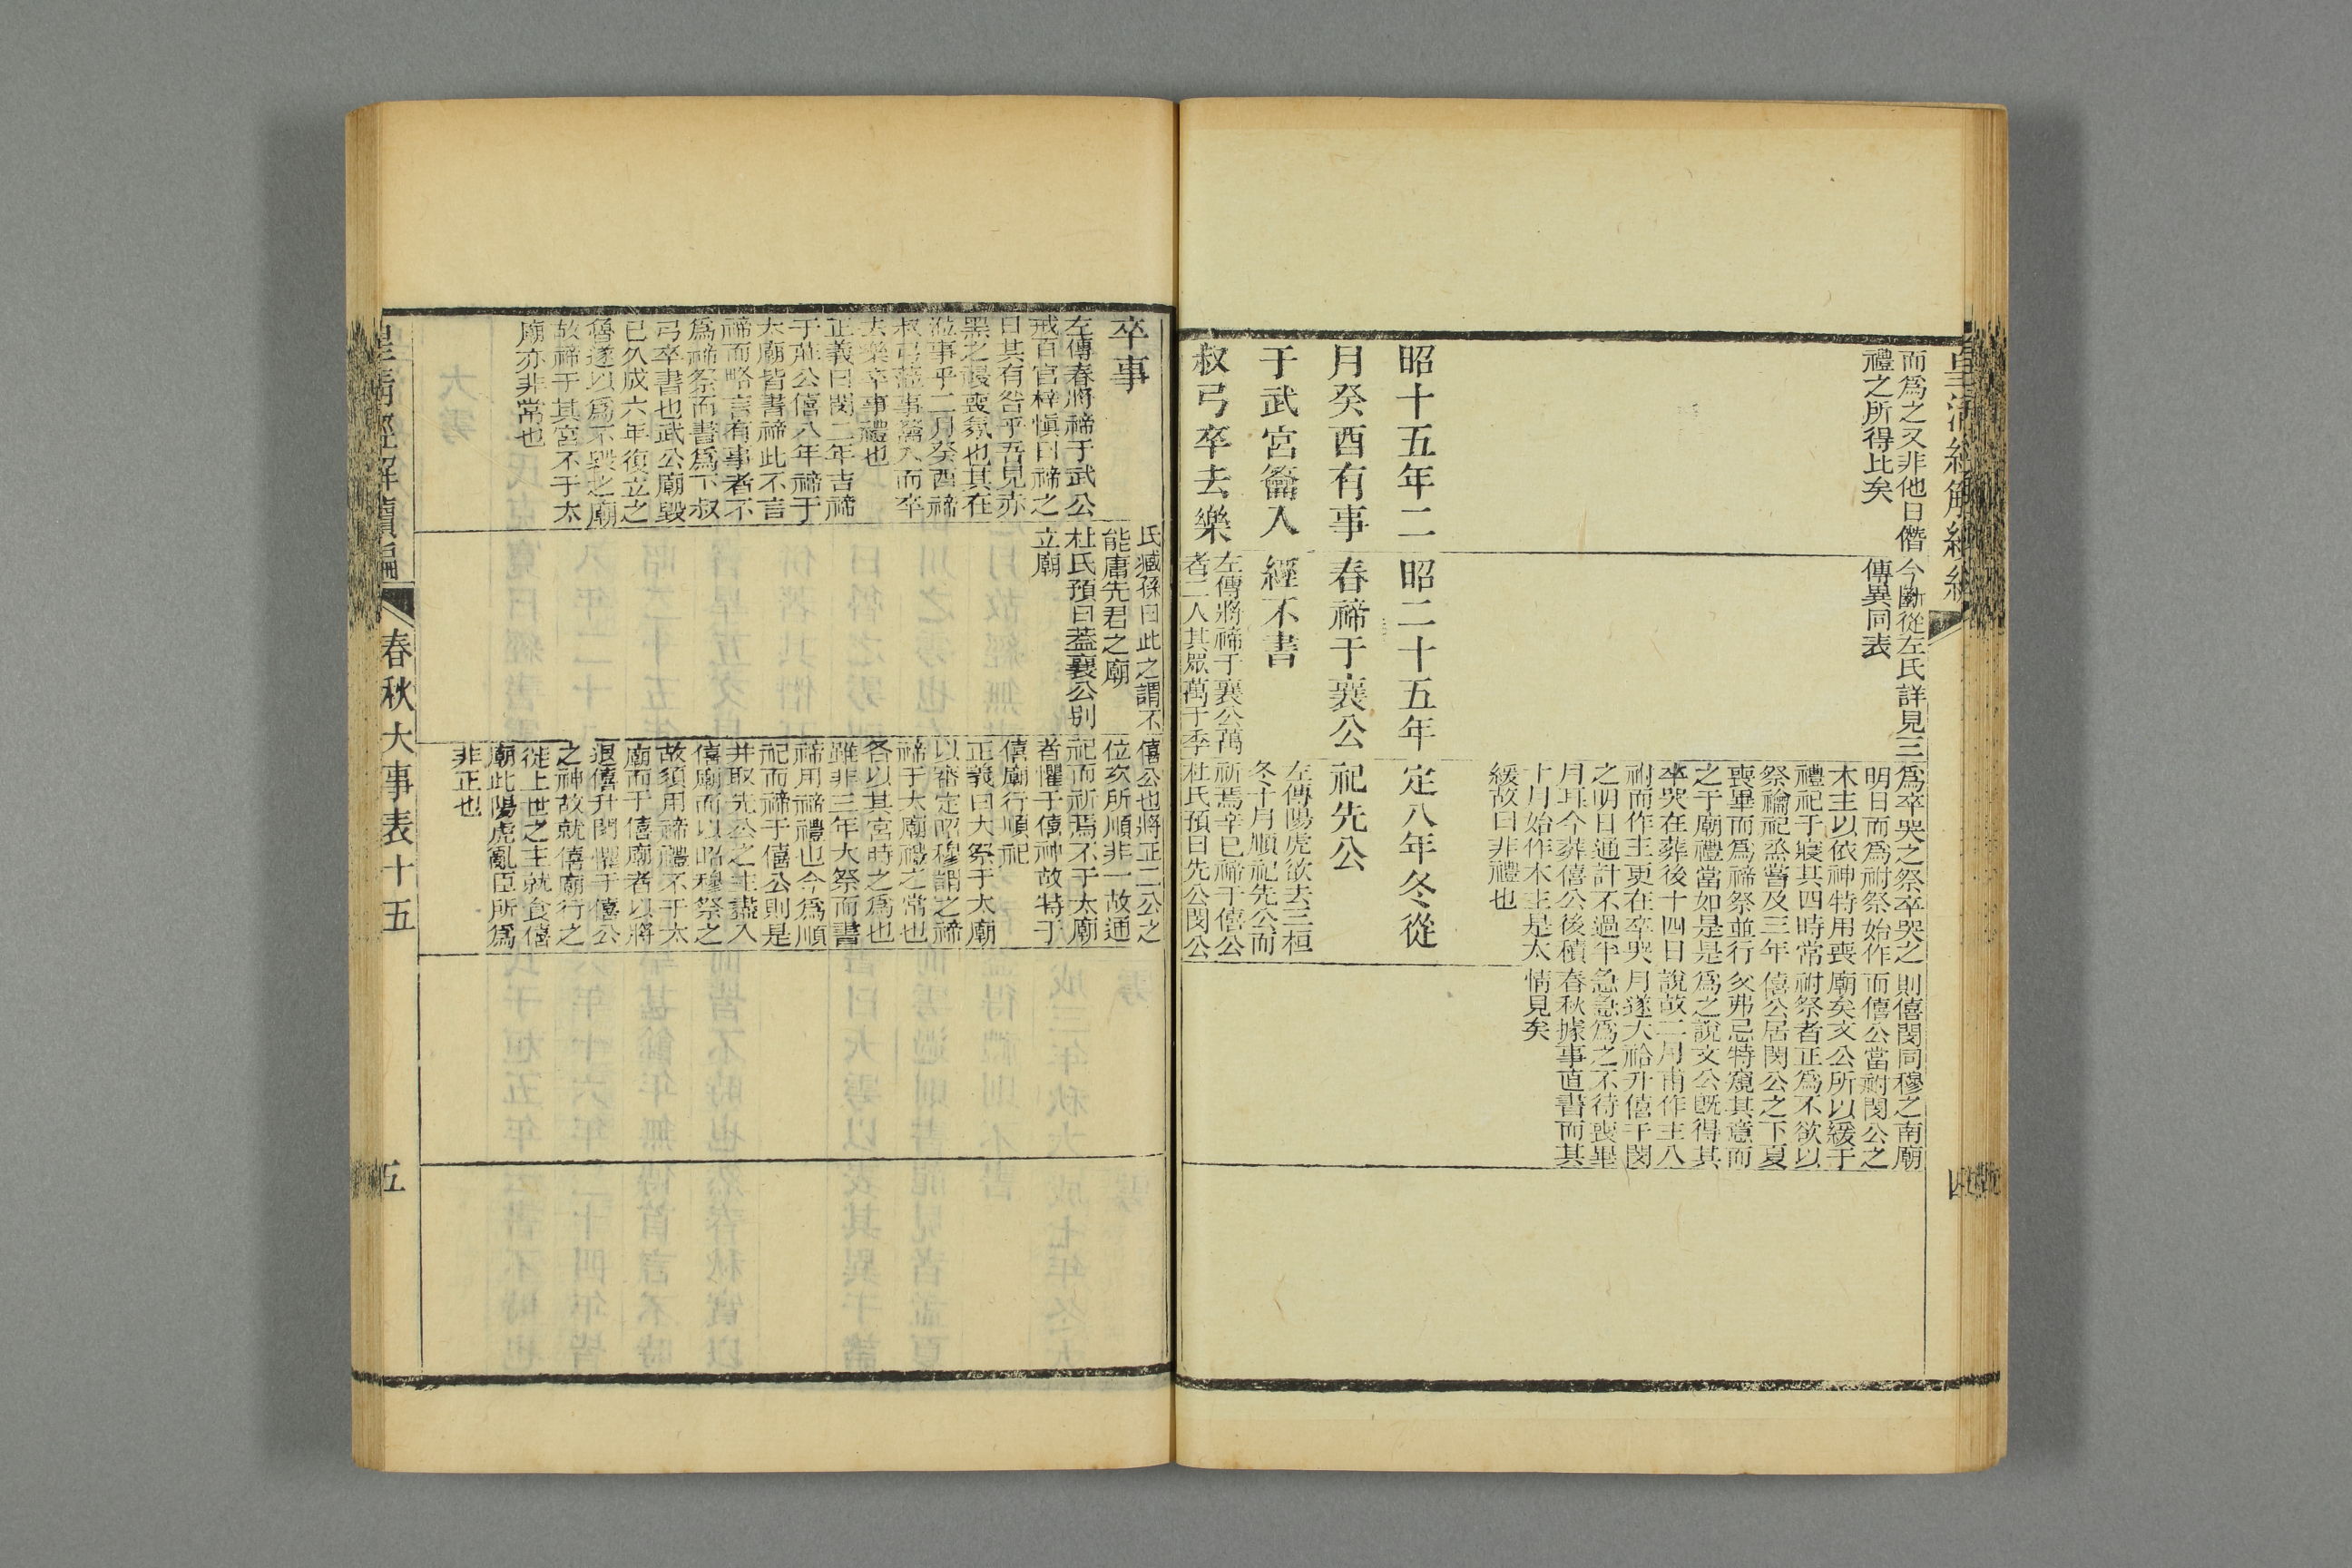 而爲之又非他日僭
禮之所得比矣
昭十五年二
月癸酉有事
于武宮籥入
叔弓卒去樂
今斷從左氏詳見三
傳異同表
昭二十五年
春禘于襄公
經不書
左傳將禘于襄公萬
者二人其眾萬于季
爲卒哭之祭卒哭之
明日而爲祔祭始作
木主以依神特用喪
禮祀于寢其四時常
祭禴祀烝嘗及三年
喪畢而爲禘祭並行
之于廟禮當如是是
卒哭在葬後十四日
祔而作主更在卒哭
之明日通計不過半
月耳今葬僖公後積
十月始作木主是太
緩故曰非禮也
定八年冬從
祀先公
左傳陽虎欲去三桓
冬十月順祀先公而
祈焉辛巳禘于僖公
杜氏預曰先公閔公
則僖閔同穆之南廟
而僖公當祔閔公之
廟矣文公所以緩于
祔祭者正爲不欲以
僖公居閔公之下夏
父弗忌特窺其意而
爲之說文公旣得其
說故二月甫作主八
月遂大祫升僖于閔
急急爲之不待喪畢
春秋據事直書而其
情見矣
皇清經解續編
春秋大事表十五
五
卒事
左傳春將禘于武公
戒百官梓慎曰禘之
日其有咎乎吾見赤
黑之祲喪氛也其在
涖事乎二月癸酉禘
叔弓涖事籥入而卒
去樂卒事禮也
正義曰閔二年吉禘
于莊公僖八年禘于
太廟皆書禘此不言
禘而略言有事者不
爲禘祭而書爲下叔
弓卒書也武公廟毀
已久成六年復立之
魯遂以爲不毀之廟
故禘于其宮不于太
廟亦非常也
氏臧孫曰此之謂不
能庸先君之廟
杜氏預曰蓋襄公別
立廟
僖公也將正二公之
位次所順非一故通
祀而祈焉不于太廟
者懼于僖神故特于
僖廟行順祀
正義曰大祭于太廟
以審定昭穆謂之禘
禘于太廟禮之常也
各以其宮時之爲也
雖非三年大祭而書
禘用禘禮也今爲順
祀而禘于僖公則是
并取先公之主盡入
僖廟而以昭穆祭之
故須用禘禮不于太
廟而于僖廟者以將
退僖升閔懼于僖公
之神故就僖廟行之
從上世之主就食僖
廟此陽虎亂臣所爲
非正也